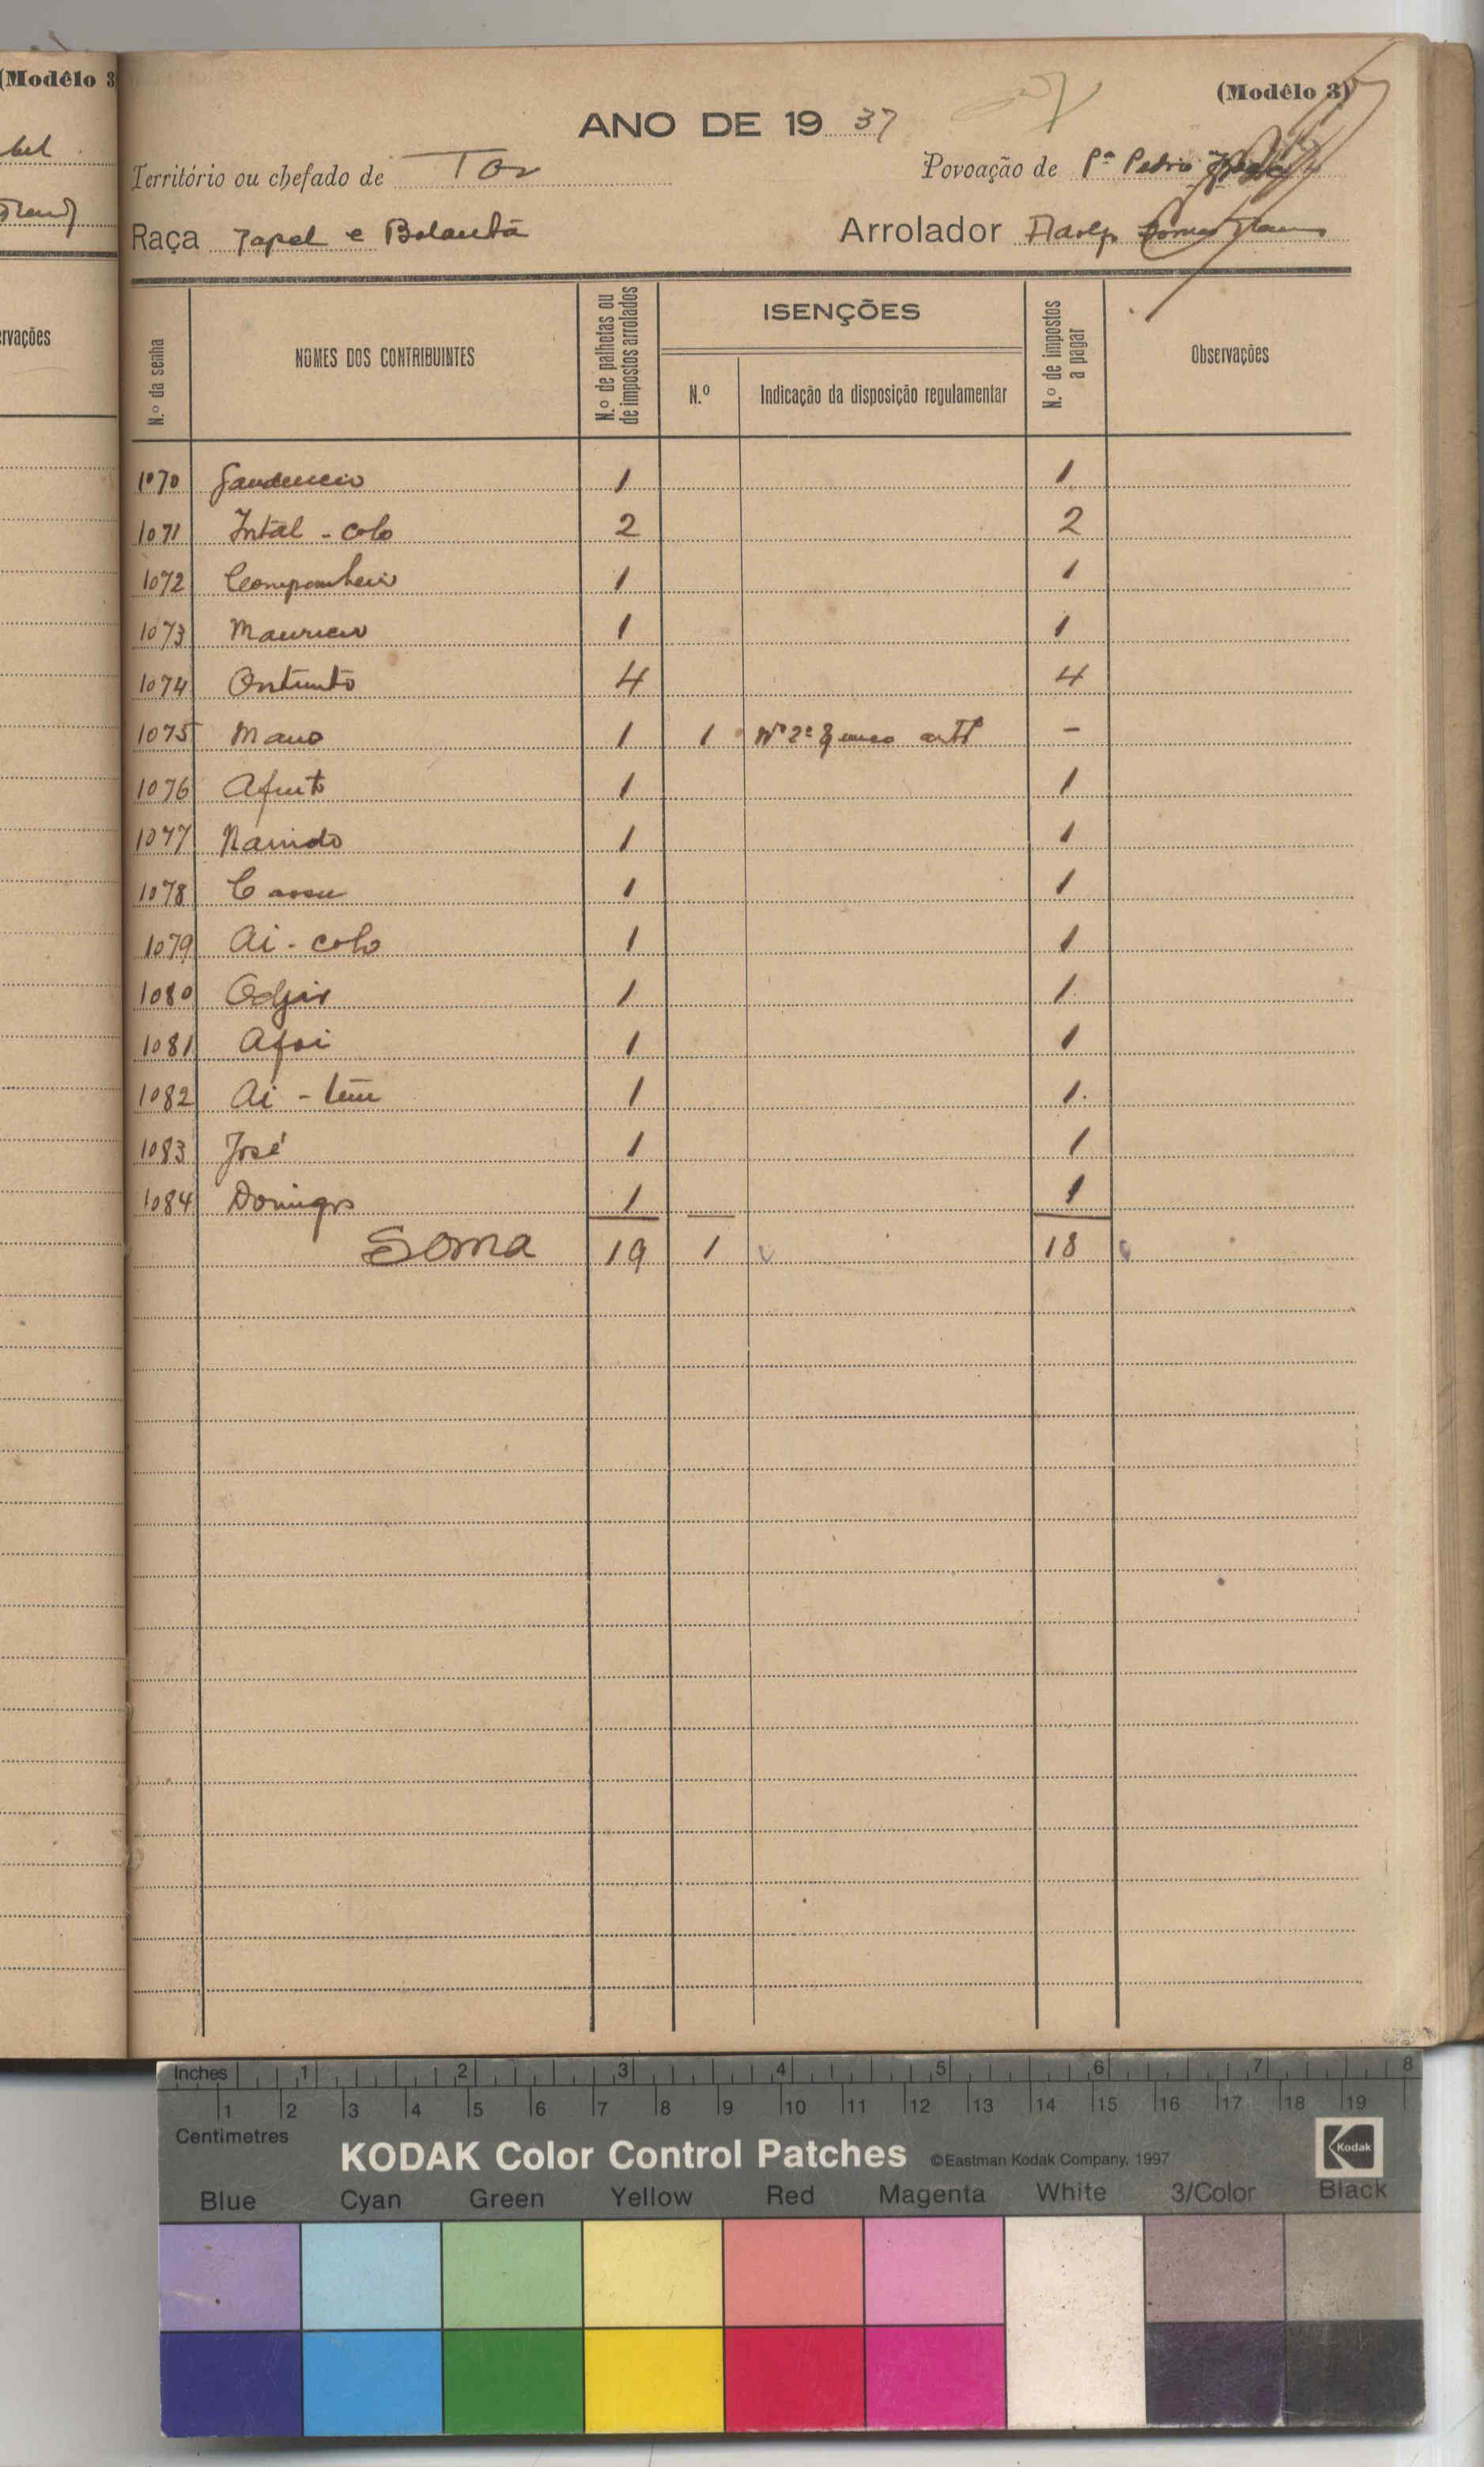 (Modêlo 3
(Modêlo 3)
ANO DE 19 37
Território ou chefado de Tor
Povoação de Pª Pedro
Raça Papel e Balanta
Arrolador Gomes
rvações
N.º da senha
NOMES DOS CONTRIBUINTES
N.º de palhotas ou de impostos arrolados
ISENÇÕES
N.º
Indicação da disposição regulamentar
N.º de impostos a pagar
Observações
1070 Gaudencio 1 1
1071 Intal - colo 2 2
1072 Companheiro 1 1
1073 Mauricio 1 1
1074 Ontunto 4 4
1075 Mano 1 1 Nº 2º artº -
1076 Afuto 1 1
1077 Naindo 1 1
1078 1 1
1079 Ai - colo 1 1
1080 Odjir 1 1
1081 Afoi 1 1
1082 Ai - 1 1
1083 José 1 1
1084 Domingos 1 1
Soma 19 1 18
Inches 1 2 3 4 5 6 7 8
1 2 3 4 5 6 7 8 9 10 11 12 13 14 15 16 17 18 19
Centimetres
KODAK Color Control Patches ©Eastman Kodak Company, 1997 Kodak
Blue Cyan Green Yellow Red Magenta White 3/Color Black